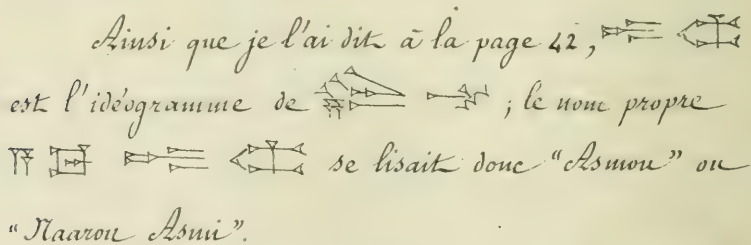 Ainsi que je l'ai dit à la page 42,
est l'idéogramme de ; le nom propre
se lisait donc "Asmou" ou
"Naarou Asmi".